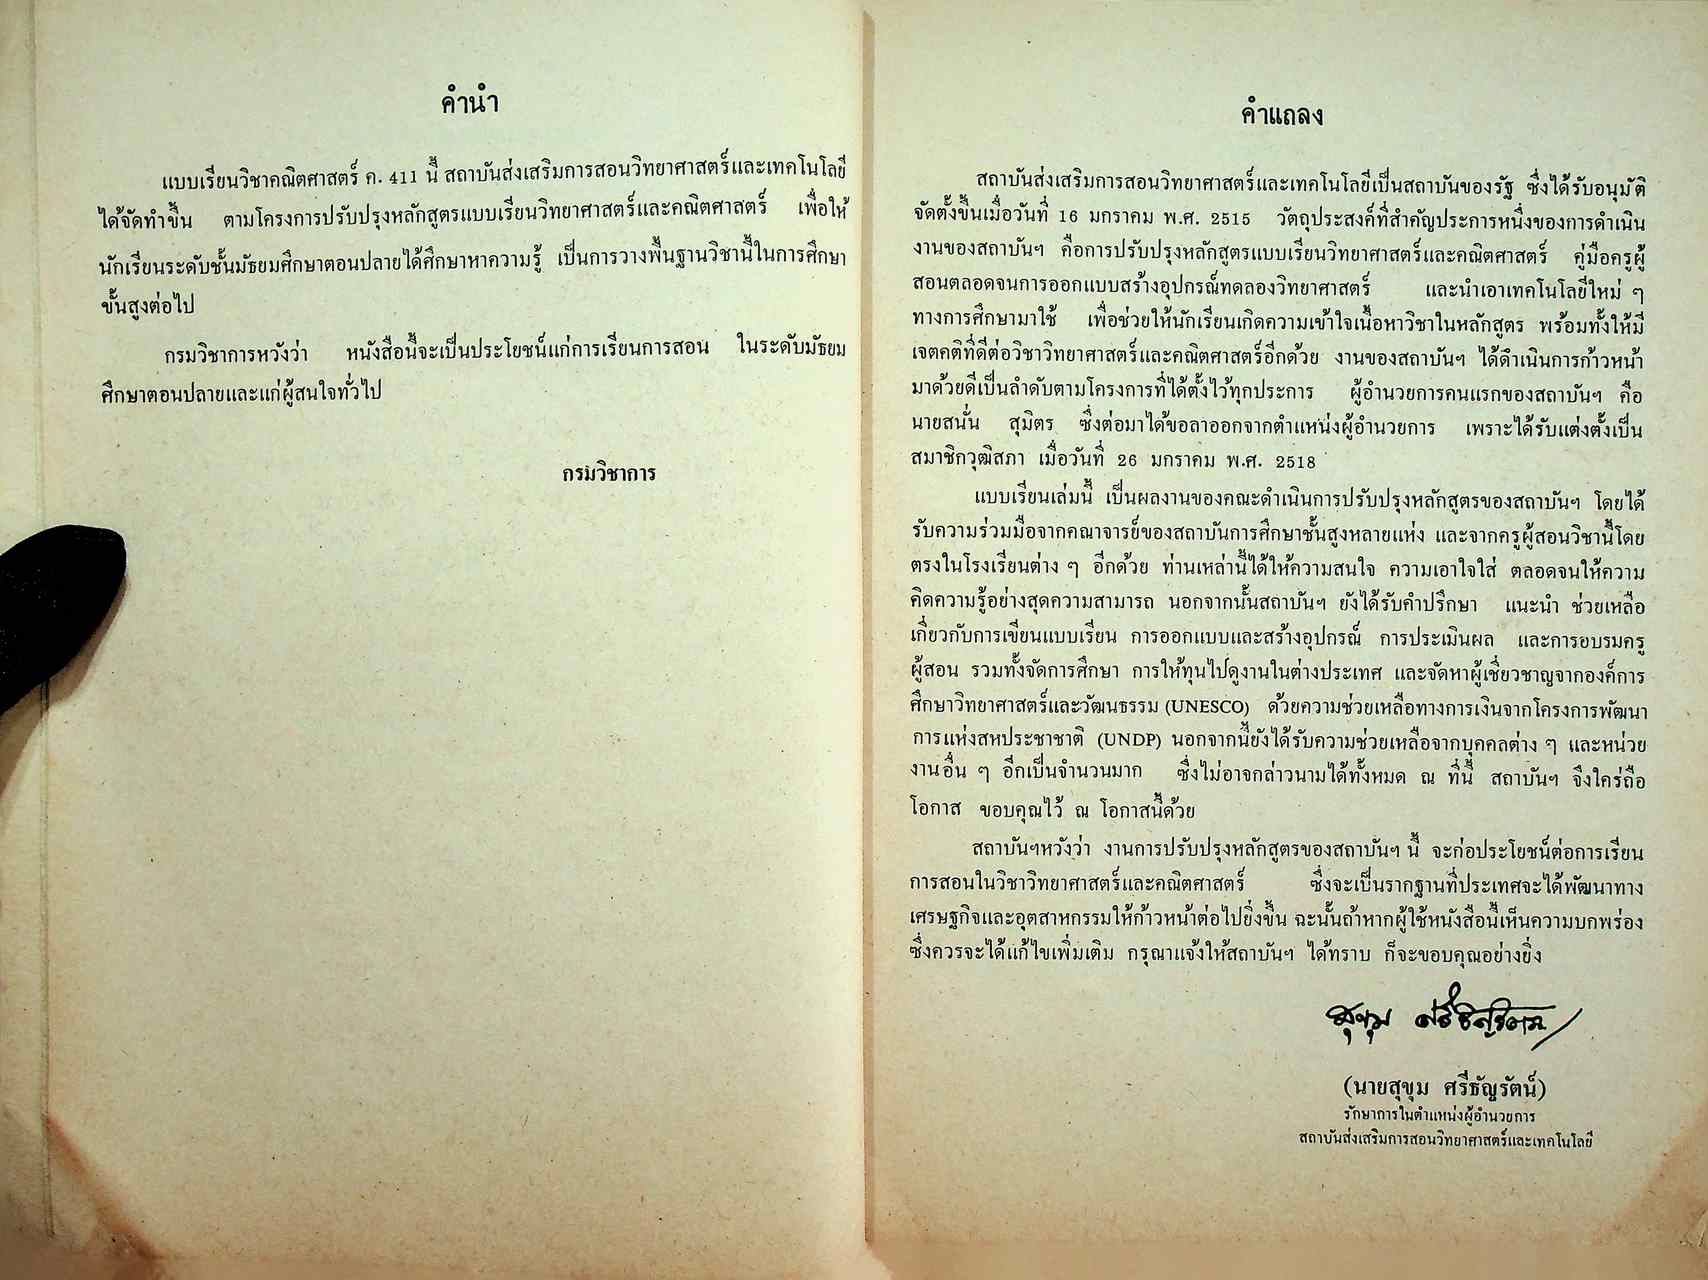 คำนำ
แบบเรียนวิชาคณิตศาสตร์ ค. 411 นี้ สถาบันส่งเสริมการสอนวิทยาศาสตร์และเทคโนโลยี
ได้จัดทำขึ้น ตามโครงการปรับปรุงหลักสูตรแบบเรียนวิทยาศาสตร์และคณิตศาสตร์ เพื่อให้
นักเรียนระดับชั้นมัธยมศึกษาตอนปลายได้ศึกษาหาความรู้ เป็นการวางพื้นฐานวิชานี้ในการศึกษา
ขั้นสูงต่อไป
กรมวิชาการหวังว่า หนังสือนี้จะเป็นประโยชน์แก่การเรียนการสอน ในระดับมัธยม
ศึกษาตอนปลายและแก่ผู้สนใจทั่วไป
กรมวิชาการ
คำแถลง
สถาบันส่งเสริมการสอนวิทยาศาสตร์และเทคโนโลยีเป็นสถาบันของรัฐ ซึ่งได้รับอนุมัติ
จัดตั้งขึ้นเมื่อวันที่ 16 มกราคม พ.ศ. 2515 วัตถุประสงค์ที่สำคัญประการหนึ่งของการดำเนิน
งานของสถาบันฯ คือการปรับปรุงหลักสูตรแบบเรียนวิทยาศาสตร์และคณิตศาสตร์ คู่มือครูผู้
สอนตลอดจนการออกแบบสร้างอุปกรณ์ทดลองวิทยาศาสตร์ และนำเอาเทคโนโลยีใหม่ ๆ
ทางการศึกษามาใช้ เพื่อช่วยให้นักเรียนเกิดความเข้าใจเนื้อหาวิชาในหลักสูตร พร้อมทั้งให้มี
เจตคติที่ดีต่อวิชาวิทยาศาสตร์และคณิตศาสตร์อีกด้วย งานของสถาบันฯ ได้ดำเนินการก้าวหน้า
มาด้วยดีเป็นลำดับตามโครงการที่ได้ตั้งไว้ทุกประการ ผู้อำนวยการคนแรกของสถาบันฯ คือ
นายสนั่น สุมิตร ซึ่งต่อมาได้ขอลาออกจากตำแหน่งผู้อำนวยการ เพราะได้รับแต่งตั้งเป็น
สมาชิกวุฒิสภา เมื่อวันที่ 26 มกราคม พ.ศ. 2518
แบบเรียนเล่มนี้ เป็นผลงานของคณะดำเนินการปรับปรุงหลักสูตรของสถาบันฯ โดยได้
รับความร่วมมือจากคณาจารย์ของสถาบันการศึกษาชั้นสูงหลายแห่ง และจากครูผู้สอนวิชานี้โดย
ตรงในโรงเรียนต่าง ๆ อีกด้วย ท่านเหล่านี้ได้ให้ความสนใจ ความเอาใจใส่ ตลอดจนให้ความ
คิดความรู้อย่างสุดความสามารถ นอกจากนั้นสถาบันฯ ยังได้รับคำปรึกษา แนะนำ ช่วยเหลือ
เกี่ยวกับการเขียนแบบเรียน การออกแบบและสร้างอุปกรณ์ การประเมินผล และการอบรมครู
ผู้สอน รวมทั้งจัดการศึกษา การให้ทุนไปดูงานในต่างประเทศ และจัดหาผู้เชี่ยวชาญจากองค์การ
ศึกษาวิทยาศาสตร์และวัฒนธรรม (UNESCO) ด้วยความช่วยเหลือทางการเงินจากโครงการพัฒนา
การแห่งสหประชาชาติ (UNDP) นอกจากนี้ยังได้รับความช่วยเหลือจากบุคคลต่าง ๆ และหน่วย
งานอื่น ๆ อีกเป็นจำนวนมาก ซึ่งไม่อาจกล่าวนามได้ทั้งหมด ณ ที่นี้ สถาบันฯ จึงใคร่ถือ
โอกาส ขอบคุณไว้ ณ โอกาสนี้ด้วย
สถาบันฯหวังว่า งานการปรับปรุงหลักสูตรของสถาบันฯ นี้ จะก่อประโยชน์ต่อการเรียน
การสอนในวิชาวิทยาศาสตร์และคณิตศาสตร์ ซึ่งจะเป็นรากฐานที่ประเทศจะได้พัฒนาทาง
เศรษฐกิจและอุตสาหกรรมให้ก้าวหน้าต่อไปยิ่งขึ้น ฉะนั้นถ้าหากผู้ใช้หนังสือนี้เห็นความบกพร่อง
ซึ่งควรจะได้แก้ไขเพิ่มเติม กรุณาแจ้งให้สถาบันฯ ได้ทราบ ก็จะขอบคุณอย่างยิ่ง
สุขุม ศรีธัญรัตน์
(นายสุขุม ศรีธัญรัตน์)
รักษาการในตำแหน่งผู้อำนวยการ
สถาบันส่งเสริมการสอนวิทยาศาสตร์และเทคโนโลยี